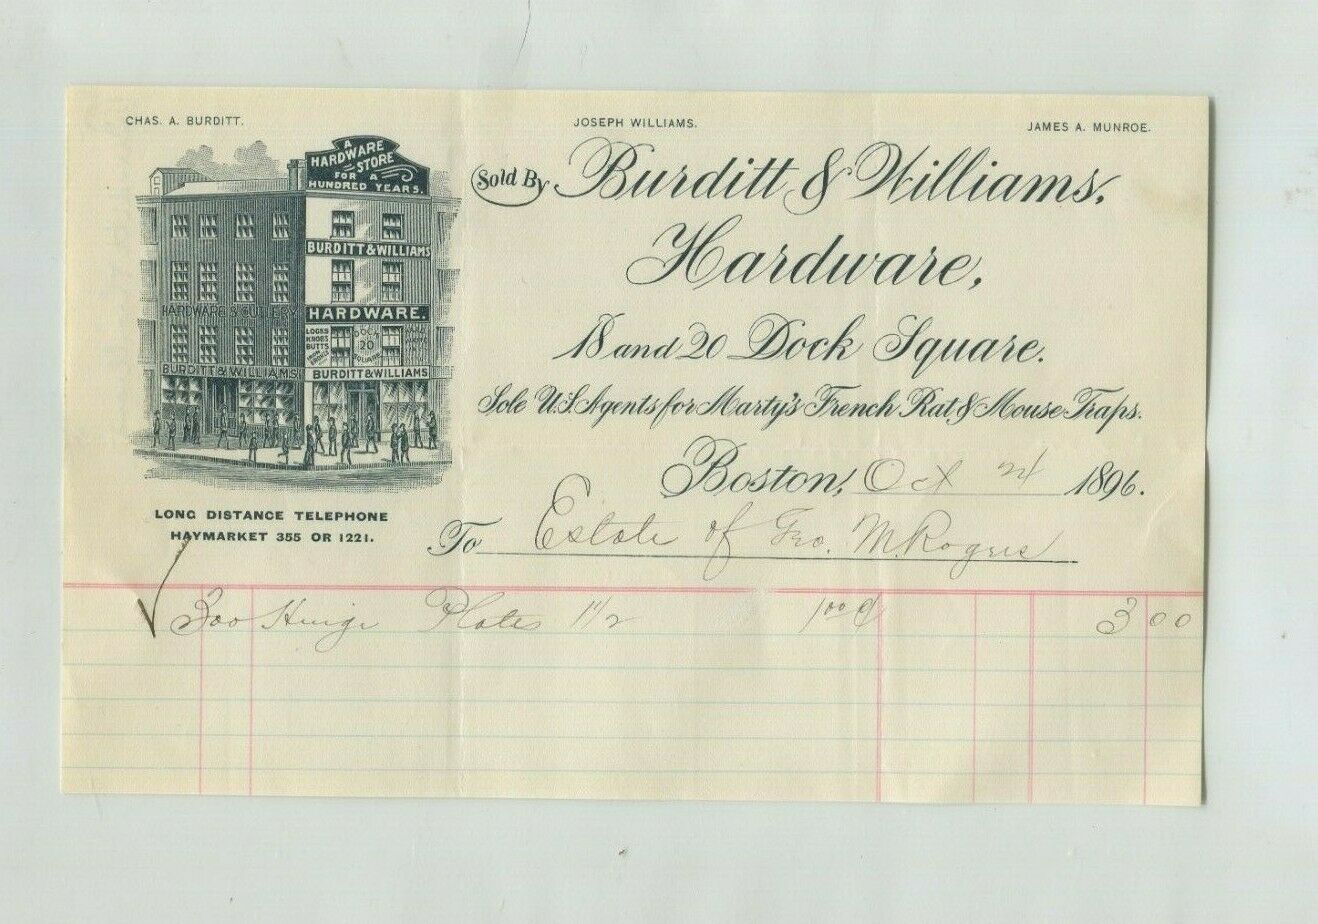 CHAS. A. BURDITT.
JOSEPH WILLIAMS.
JAMES A. MUNROE.
A
HARDWARE
STORE
FOR A
HUNDRED YEARS.
BURDITT & WILLIAMS
HARDWARE & CUTLERY
HARDWARE.
LOCKS
KNOBS
BUTTS
DOCK
20
BURDITT & WILLIAMS
BURDITT & WILLIAMS
LONG DISTANCE TELEPHONE
HAYMARKET 355 OR 1221.
Sold By Burditt & Williams,
Hardware,
18 and 20 Dock Square.
Sole U.S. Agents for Marty's French Rat & Mouse Traps.
Boston, Oct 24 1896.
To Estate of Geo. M. Rogers
300 Hinge Plates 1 1/2 1 00 3 00